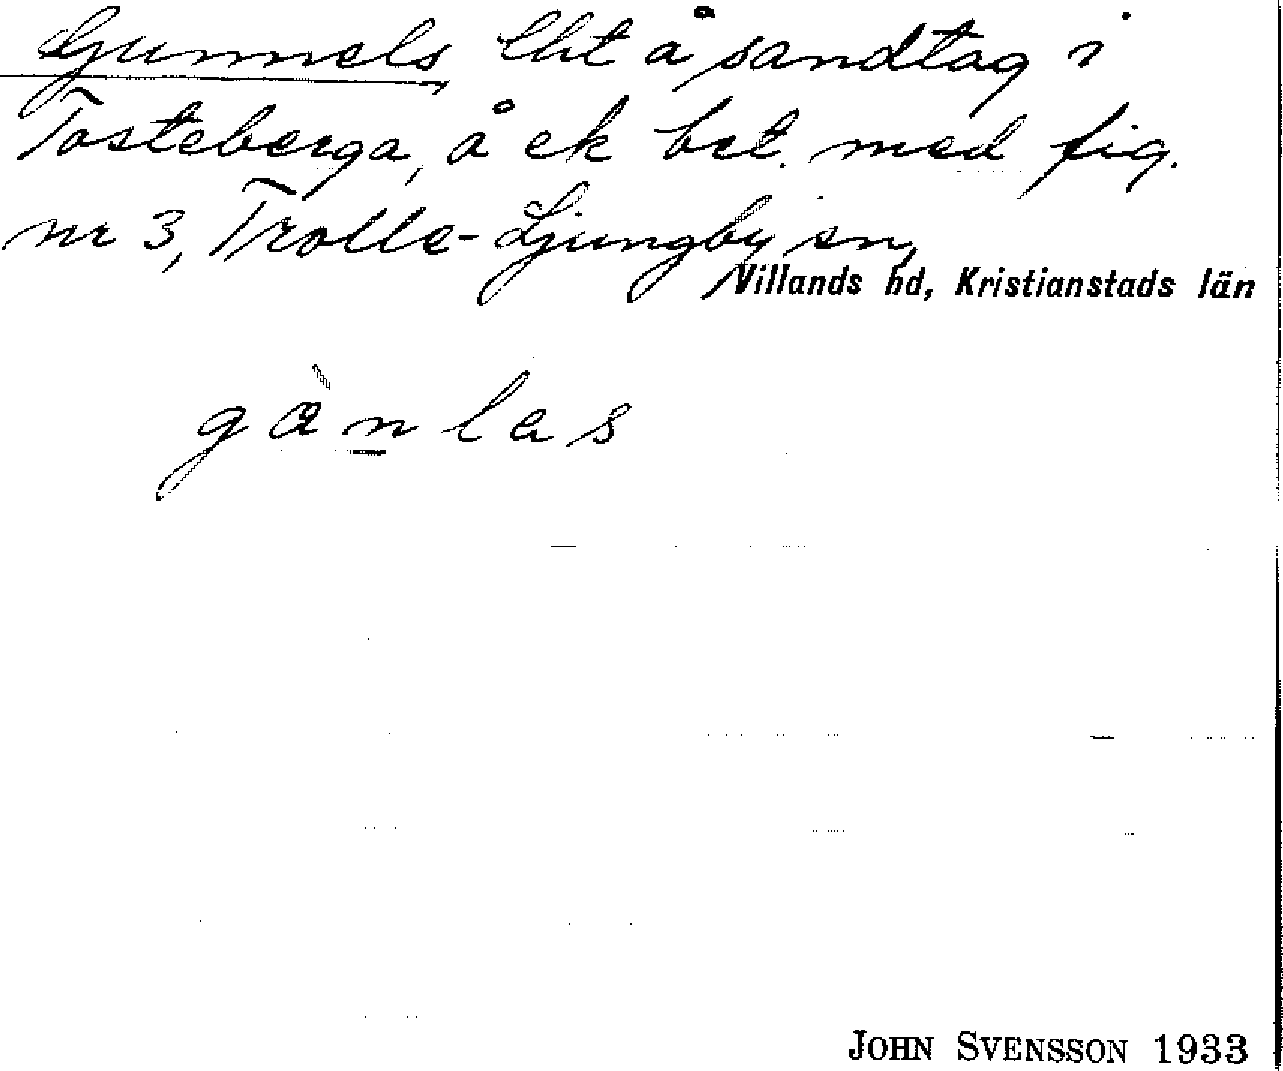 Gunnels lht å sandtag i
Tosteberga, å ek bet. med fig.
nr 3, Trolle-Ljungby sn,
Villands hd, Kristianstads län
gànlas
JOHN SVENSSON 1933